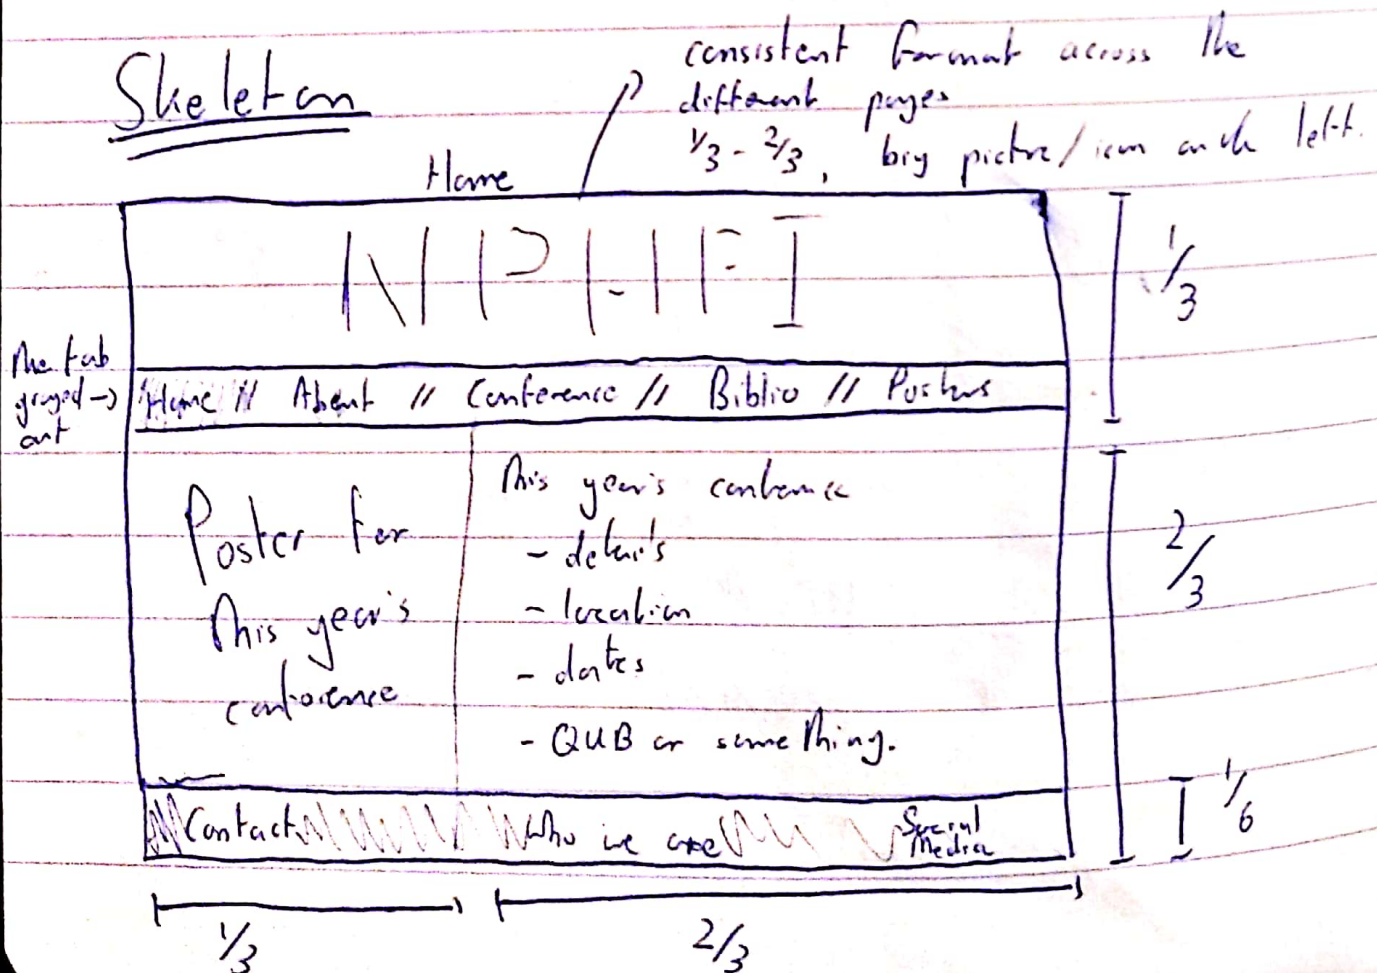 Skeleton
consistent format across the
different pages
1/3 - 2/3, big picture/icon on the left.
Home
NPHFI
1/3
The tab
greyed →
out
Home // About // Conference // Biblio // Posters
Poster for
This year's
conference
This year's conference
- details
- location
- dates
- QUB or something.
2/3
Contact Who we are Social
Media
1/6
1/3
2/3